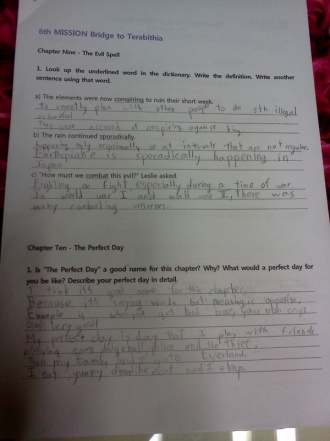 6th MISSION Bridge to Terabithia
Chapter Nine - The Evil Spell
1. Look up the underlined word in the dictionary. Write the definition. Write another
sentence using that word.
a) The elements were now conspiring to ruin their short week.
To secretly plan with other people to do sth illegal
or harmful
They were accused of conspiring against king
b) The rain continued sporadically.
happening only occasionally or at intervals that are not regular
Earthquake is sporadically happening in
Japan.
c) "How must we combat this evil?" Leslie asked.
Fighting or fight, especially during a time of war.
In world war I and world war II, there was
many combating
Chapter Ten - The Perfect Day
1. Is "The Perfect Day" a good name for this chapter? Why? What would a perfect day for
you be like? Describe your perfect day in detail.
I think it's good name for this chapter.
Because it's saying words but meaning is opposite.
Example is when you get bad your mom says
Oh! Very good
My perfect day is day that I play with friends
playing game police and the thief.
my family go to Everland.
I eat yummy and I sleep.